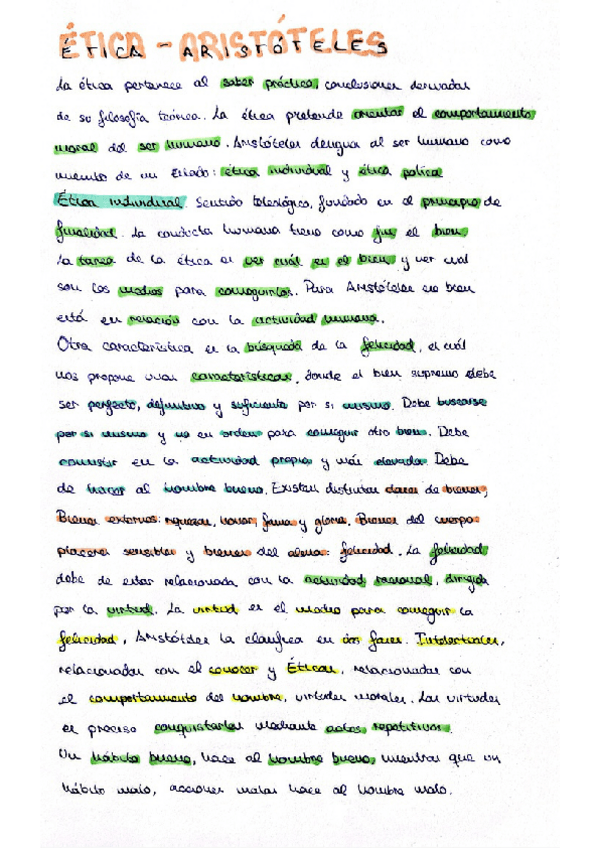 ÉTICA - ARISTÓTELES
La ética pertenece al saber práctico, conclusiones derivadas
de su filosofía teórica. La ética pretende orientar el comportamiento
moral del ser humano. Aristóteles designa al ser humano como
miembro de un Estado: ética individual y ética política
Ética individual. Sentido teleológico, fundado en el principio de
finalidad. La conducta humana tiene como fin el bien,
la tarea de la ética es ver cuál es el bien, y ver cuál
son los medios para conseguirlos. Para Aristóteles ese bien
está en relación con la actividad humana.
Otra característica es la búsqueda de la felicidad, el cuál
nos propone unas características, donde el bien supremo debe
ser perfecto, definitivo y suficiente por sí mismo. Debe buscarse
por sí mismo y no en orden para conseguir otro bien. Debe
consistir en la actividad propia y más elevada. Debe
de hacer al hombre bueno. Existen distintas clases de bienes,
Bienes externos: riquezas, honor, fama y gloria. Bienes del cuerpo
placeres sensibles y bienes del alma: felicidad. La felicidad
debe de estar relacionada con la actividad racional, dirigida
por la virtud. La virtud es el medio para conseguir la
felicidad, Aristóteles la clasifica en dos fases. Intelectuales,
relacionadas con el conocer y Éticas, relacionadas con
el comportamiento del hombre, virtudes morales. Las virtudes
es preciso conquistarlas mediante actos repetitivos.
Un hábito bueno, hace al hombre bueno, mientras que un
hábito malo, acciones malas hace al hombre malo.